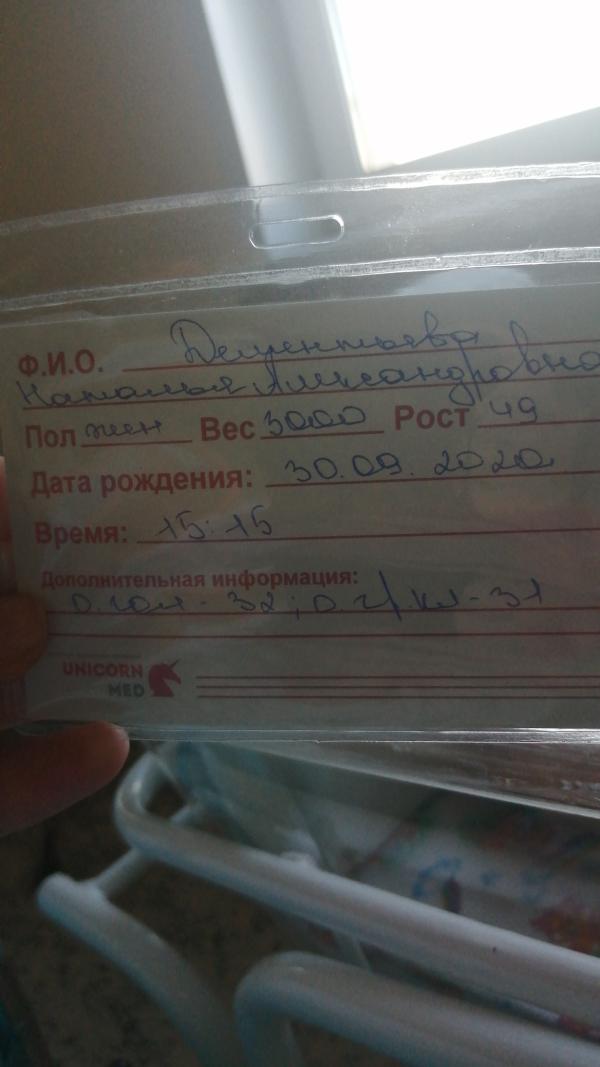 Ф.И.О. Дементьева
Наталья Александровна
Пол жен Вес 3000 Рост 49
Дата рождения: 30.09.2020
Время: 15:15
Дополнительная информация:
о.гол - 32; о.гр.кл - 31
UNICORN
MED